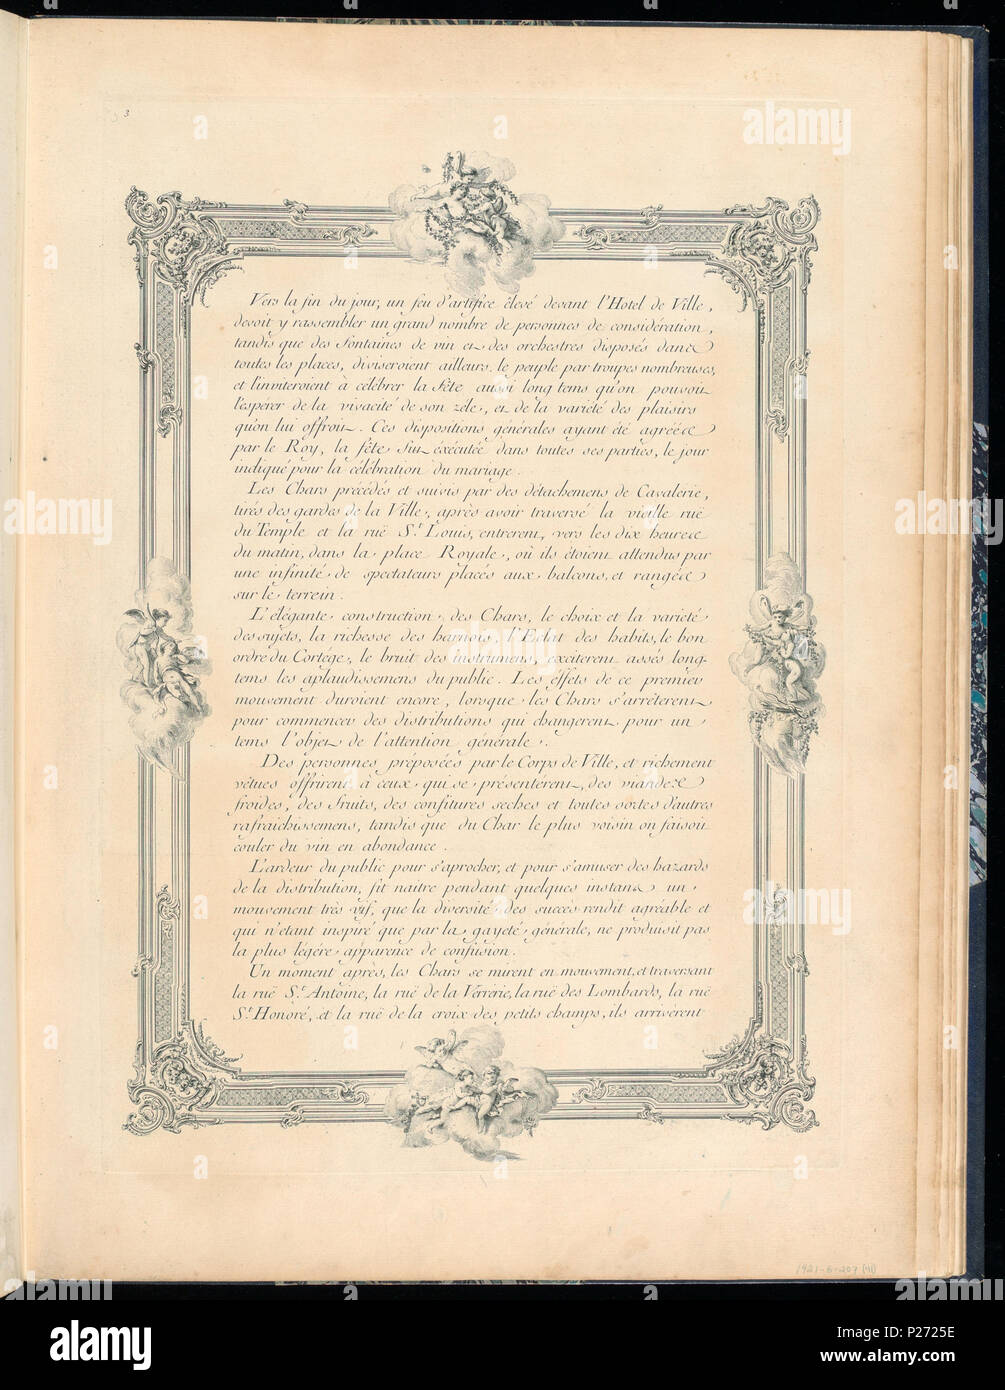 3
Vers la fin du jour, un feu d'artifice élevé devant l'Hotel de Ville,
devoit y rassembler un grand nombre de personnes de considération,
tandis que des Fontaines de vin et des orchestres disposés dans
toutes les places, diviseroient ailleurs le peuple par troupes nombreuses,
et l'inviteroient à célébrer la Fête aussi long tems qu'on pouvoit
l'espérer de la vivacité de son zéle, et de la variété des plaisirs
qu'on lui offroit. Ces dispositions générales ayant été agréées
par le Roy, la fête fut éxécutée dans toutes ses parties, le jour
indiqué pour la célébration du mariage.
Les Chars précédés et suivis par des détachemens de Cavalerie,
tirés des gardes de la Ville, après avoir traversé la vieille ruë
du Temple et la ruë St. Louis, entrerent, vers les dix heures
du matin, dans la place Royale, où ils étoient attendus par
une infinité de spectateurs placés aux balcons, et rangés
sur le terrein.
L'élégante construction des Chars, le choix et la variété
des sujets, la richesse des harnois, l'Eclat des habits, le bon
ordre du Cortége, le bruit des instrumens, exciterent assés long-
tems les aplaudissemens du public. Les éffets de ce premier
mouvement duroient encore, lorsque les Chars s'arrêterent
pour commencer des distributions qui changerent pour un
tems l'objet de l'attention générale.
Des personnes préposées par le Corps de Ville, et richement
vêtues offrirent à ceux qui se présenterent, des viandes
froides, des fruits, des confitures seches et toutes sortes d'autres
rafraichissemens, tandis que du Char le plus voisin on faisoit
couler du vin en abondance.
L'ardeur du public pour s'aprocher, et pour s'amuser des hazards
de la distribution, fit naitre pendant quelques instans un
mouvement très vif, que la diversité des succès rendit agréable et
qui n'etant inspiré que par la gayeté générale, ne produisit pas
la plus légére apparence de confusion.
Un moment après, les Chars se mirent en mouvement, et traversant
la ruë St. Antoine, la ruë de la Verrerie, la ruë des Lombards, la ruë
St. Honoré, et la ruë de la croix des petits champs, ils arrivèrent
1921-6-207(41)
alamy
Image ID: P2725E
www.alamy.com